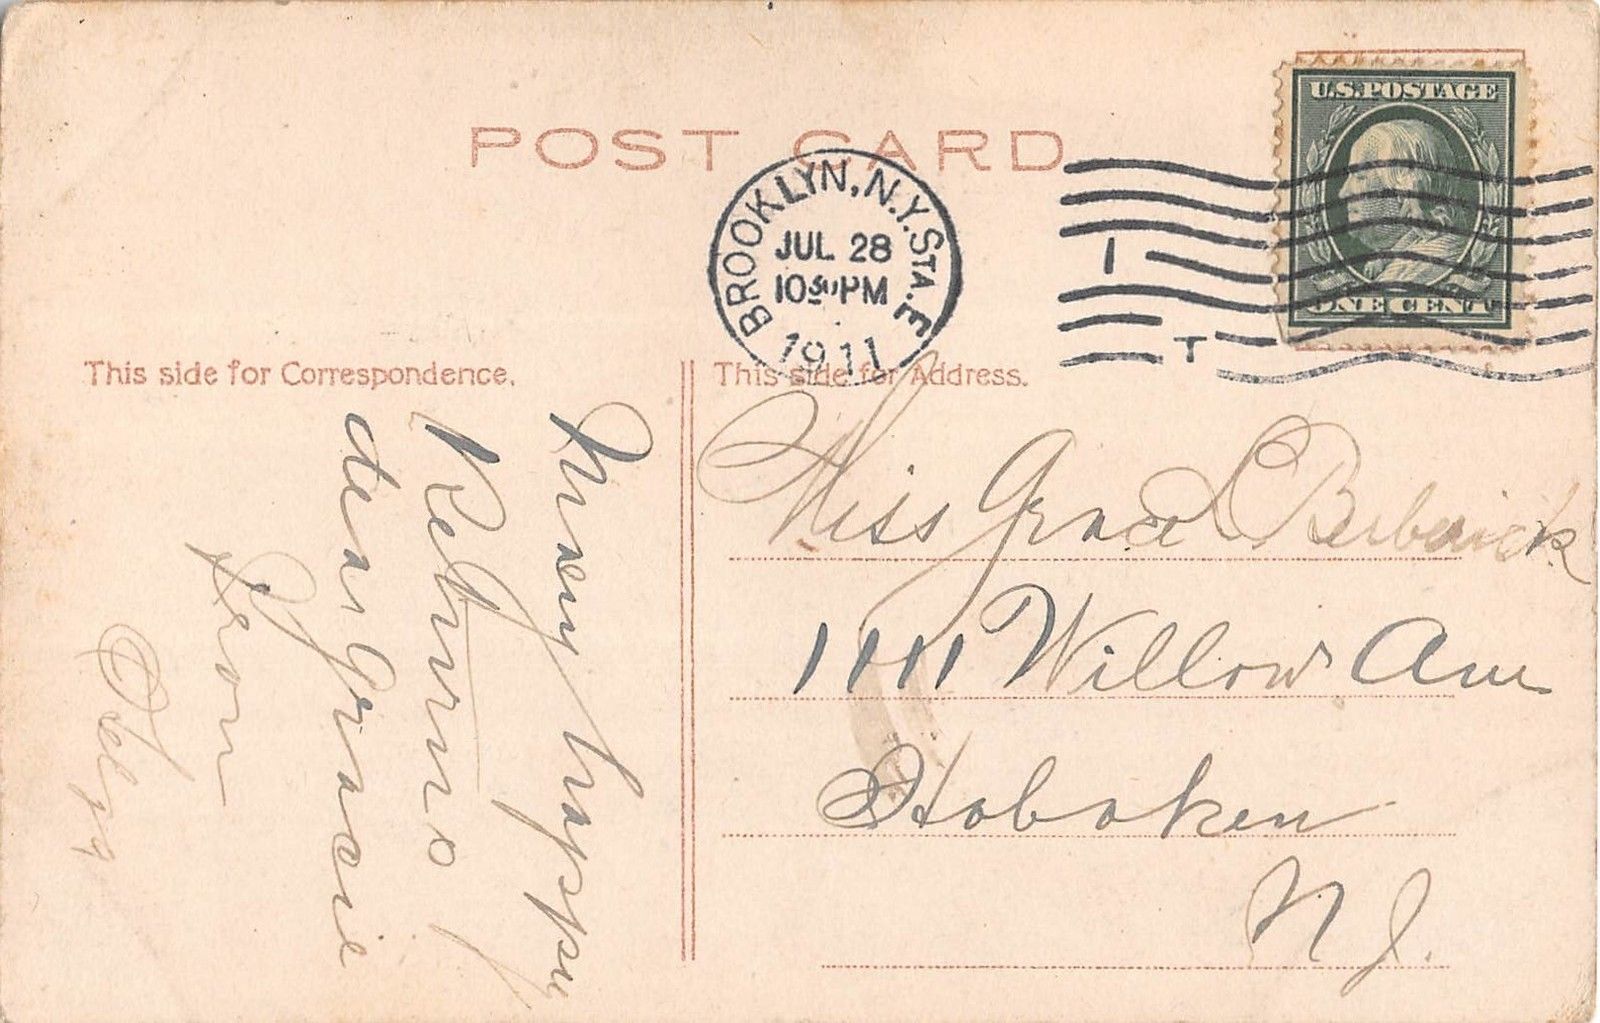 POST CARD
U.S. POSTAGE
ONE CENT
BROOKLYN, N.Y. STA. E
JUL 28
10 30 PM
1911
1
T
This side for Correspondence.
This side for Address.
Many happy
Returns
dear Gracie
From
Miss Grace
1111 Willow Ave
Hoboken
N J.